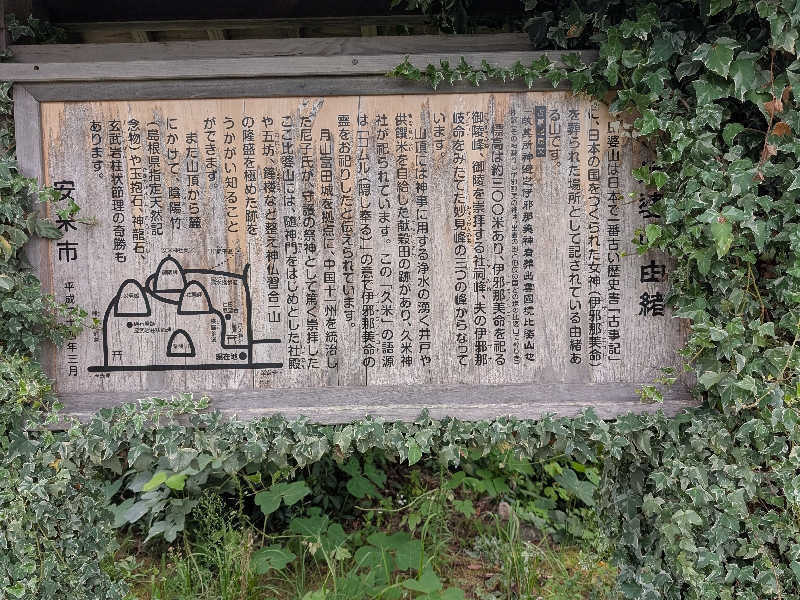 山由緒
比婆山は日本で一番古い歴史書「古事記」
に、日本の国をつくられた女神（伊邪那美命）
を葬られた場所として記されている由緒あ
る山です。
故其所神避之伊邪那美神者葬出雲國與
標高は約三〇〇米あり、伊邪那美命を祀る
御陵峰、御陵を崇拝する社祠峰、夫の伊邪那
岐命をみたてた妙見峰の三つの峰からなって
います。
山頂には神事に用する浄水の湧く井戸や
供饌米を自給した献穀田の跡があり、久米神
社が祀られています。この「久米」の語源
は「コムル（隠し奉る）」の意で伊邪那美命の
霊をお祀りしたと伝えられています。
月山富田城を拠点に、中国十一州を統治し
た尼子氏が、守護の祭神として篤く崇拝した
ここ比婆山には、随神門をはじめとした社殿
や五坊、鐘楼など整え神仏習合一山
の隆盛を極めた跡を
うかがい知ること
ができます。
また山頂から麓
にかけて、陰陽竹
（島根県指定天然記
念物）や玉抱石、神龍石、
玄武岩柱状節理の奇勝も
あります。
安来市
平成
年三月
現在地